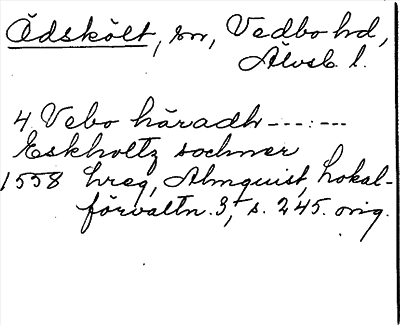 Ödskölt, sn, Vedbo hd,
Älvsb. l.
4 Vebo häradh - - - : - - -
Eskholtz sochner
1558 Lreg, Almquist, Lokal-
förvaltn. 3, s. 245. orig.